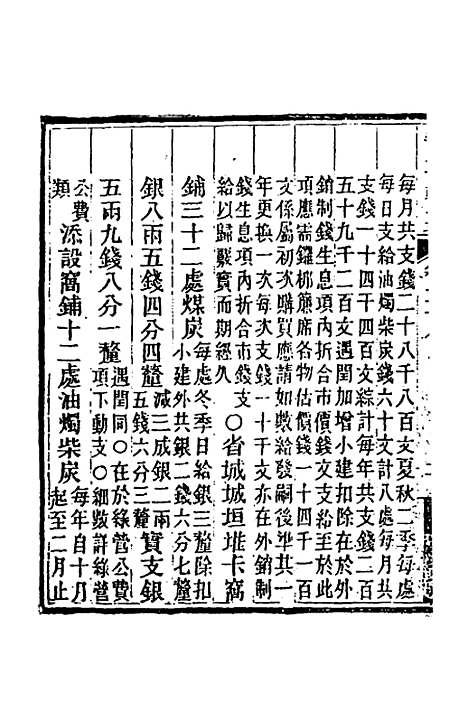 每月共支錢二十八千八百文夏秋二季每處
每日支給油燭柴炭錢六十文計八處每月共
支錢一十四千四百文綜計每年共支錢二百
五十九千二百文遇閏加增小建扣除在於外
銷制錢生息項內折合市價錢文支給至於此
項應需鑼梆簾席各物估價錢一十四千一百
文係屬初次購買應請如數給發嗣後準共一
年更換一次每次支錢一十千文在外銷制
錢生息項內折合市錢支
給以歸覈實而期經久 ○省城城垣堆卡窩
鋪三十二處煤炭 每處冬季日給銀三釐除扣
小建外共銀二錢六分七釐
銀八兩五錢四分四釐 減三成銀二兩
五錢六分三釐 實支銀
五兩九錢八分一釐 遇閏同○在於綠營公費
項下動支○細數詳綠營
公費
類 添設窩鋪十二處油燭柴炭 每年自十月
起至二月止